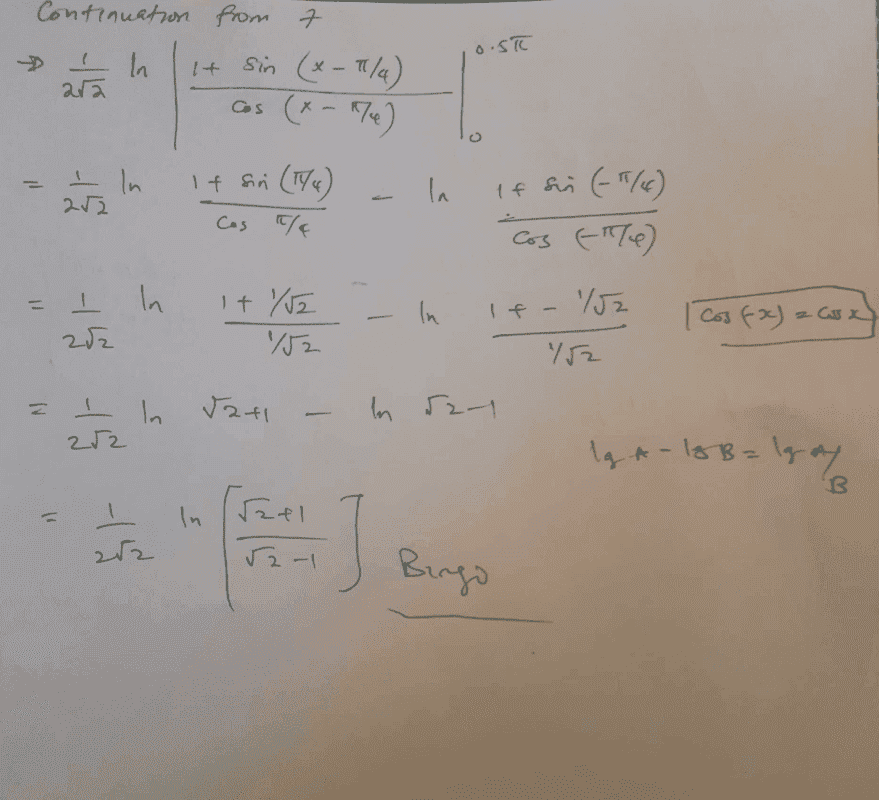 Continuation from 7
⇒ 1/(2√2) ln | (1+ sin (x - π/4)) / (cos (x - π/4)) | 0.5π 0
= 1/(2√2) ln (1+ sin (π/4)) / (cos π/4) - ln (1+ sin (-π/4)) / (cos (-π/4))
= 1/(2√2) ln (1+ 1/√2) / (1/√2) - ln (1+ - 1/√2) / (1/√2) | cos (-x) = cos x
= 1/(2√2) ln √2+1 - ln √2-1
lg A - lg B = lg A/B
= 1/(2√2) ln [ (√2+1) / (√2-1) ] Bingo